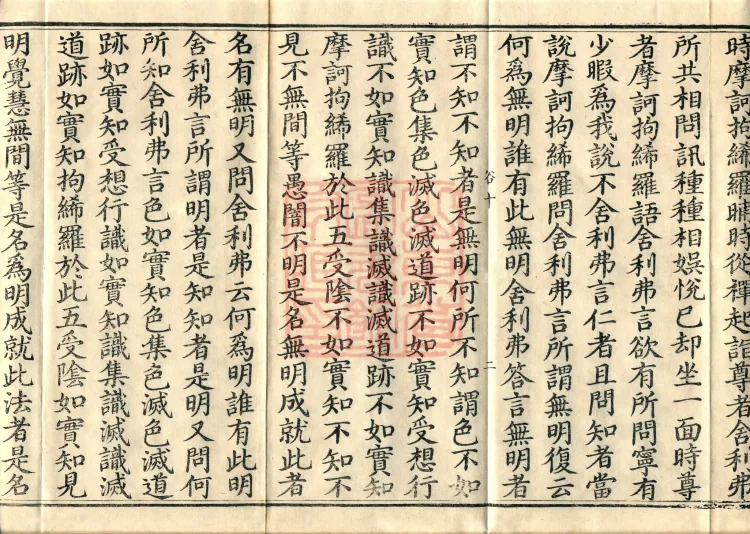 時摩訶拘絺羅晡時從禪起詣尊者舍利弗
所共相問訊種種相娛悅已却坐一面時尊
者摩訶拘絺羅語舍利弗言欲有所問寧有
少暇爲我說不舍利弗言仁者且問知者當
說摩訶拘絺羅問舍利弗言所謂無明復云
何爲無明誰有此無明舍利弗答言無明者
谷十 二
謂不知不知者是無明何所不知謂色不如
實知色集色滅色滅道跡不如實知受想行
識不如實知識集識滅識滅道跡不如實知
摩訶拘絺羅於此五受陰不如實知不知不
見不無間等愚闇不明是名無明成就此者
名有無明又問舍利弗云何爲明誰有此明
舍利弗言所謂明者是知知者是明又問何
所知舍利弗言色如實知色集色滅色滅道
跡如實知受想行識如實知識集識滅識滅
道跡如實知拘絺羅於此五受陰如實知見
明覺慧無間等是名爲明成就此法者是名